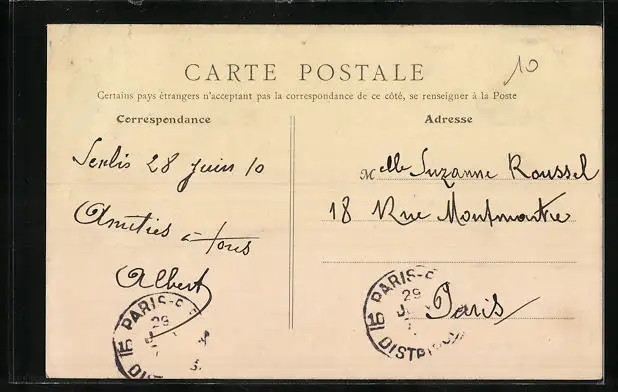 CARTE POSTALE
10
Certains pays étrangers n'acceptant pas la correspondance de ce côté, se renseigner à la Poste
Correspondance
Senlis 28 juin 10
Amitiés à tous
Albert
PARIS
29
15
DIST
Adresse
Melle Suzanne Roussel
18 Rue Montmartre
Paris
PARIS
29
15
DISTRIBUTION